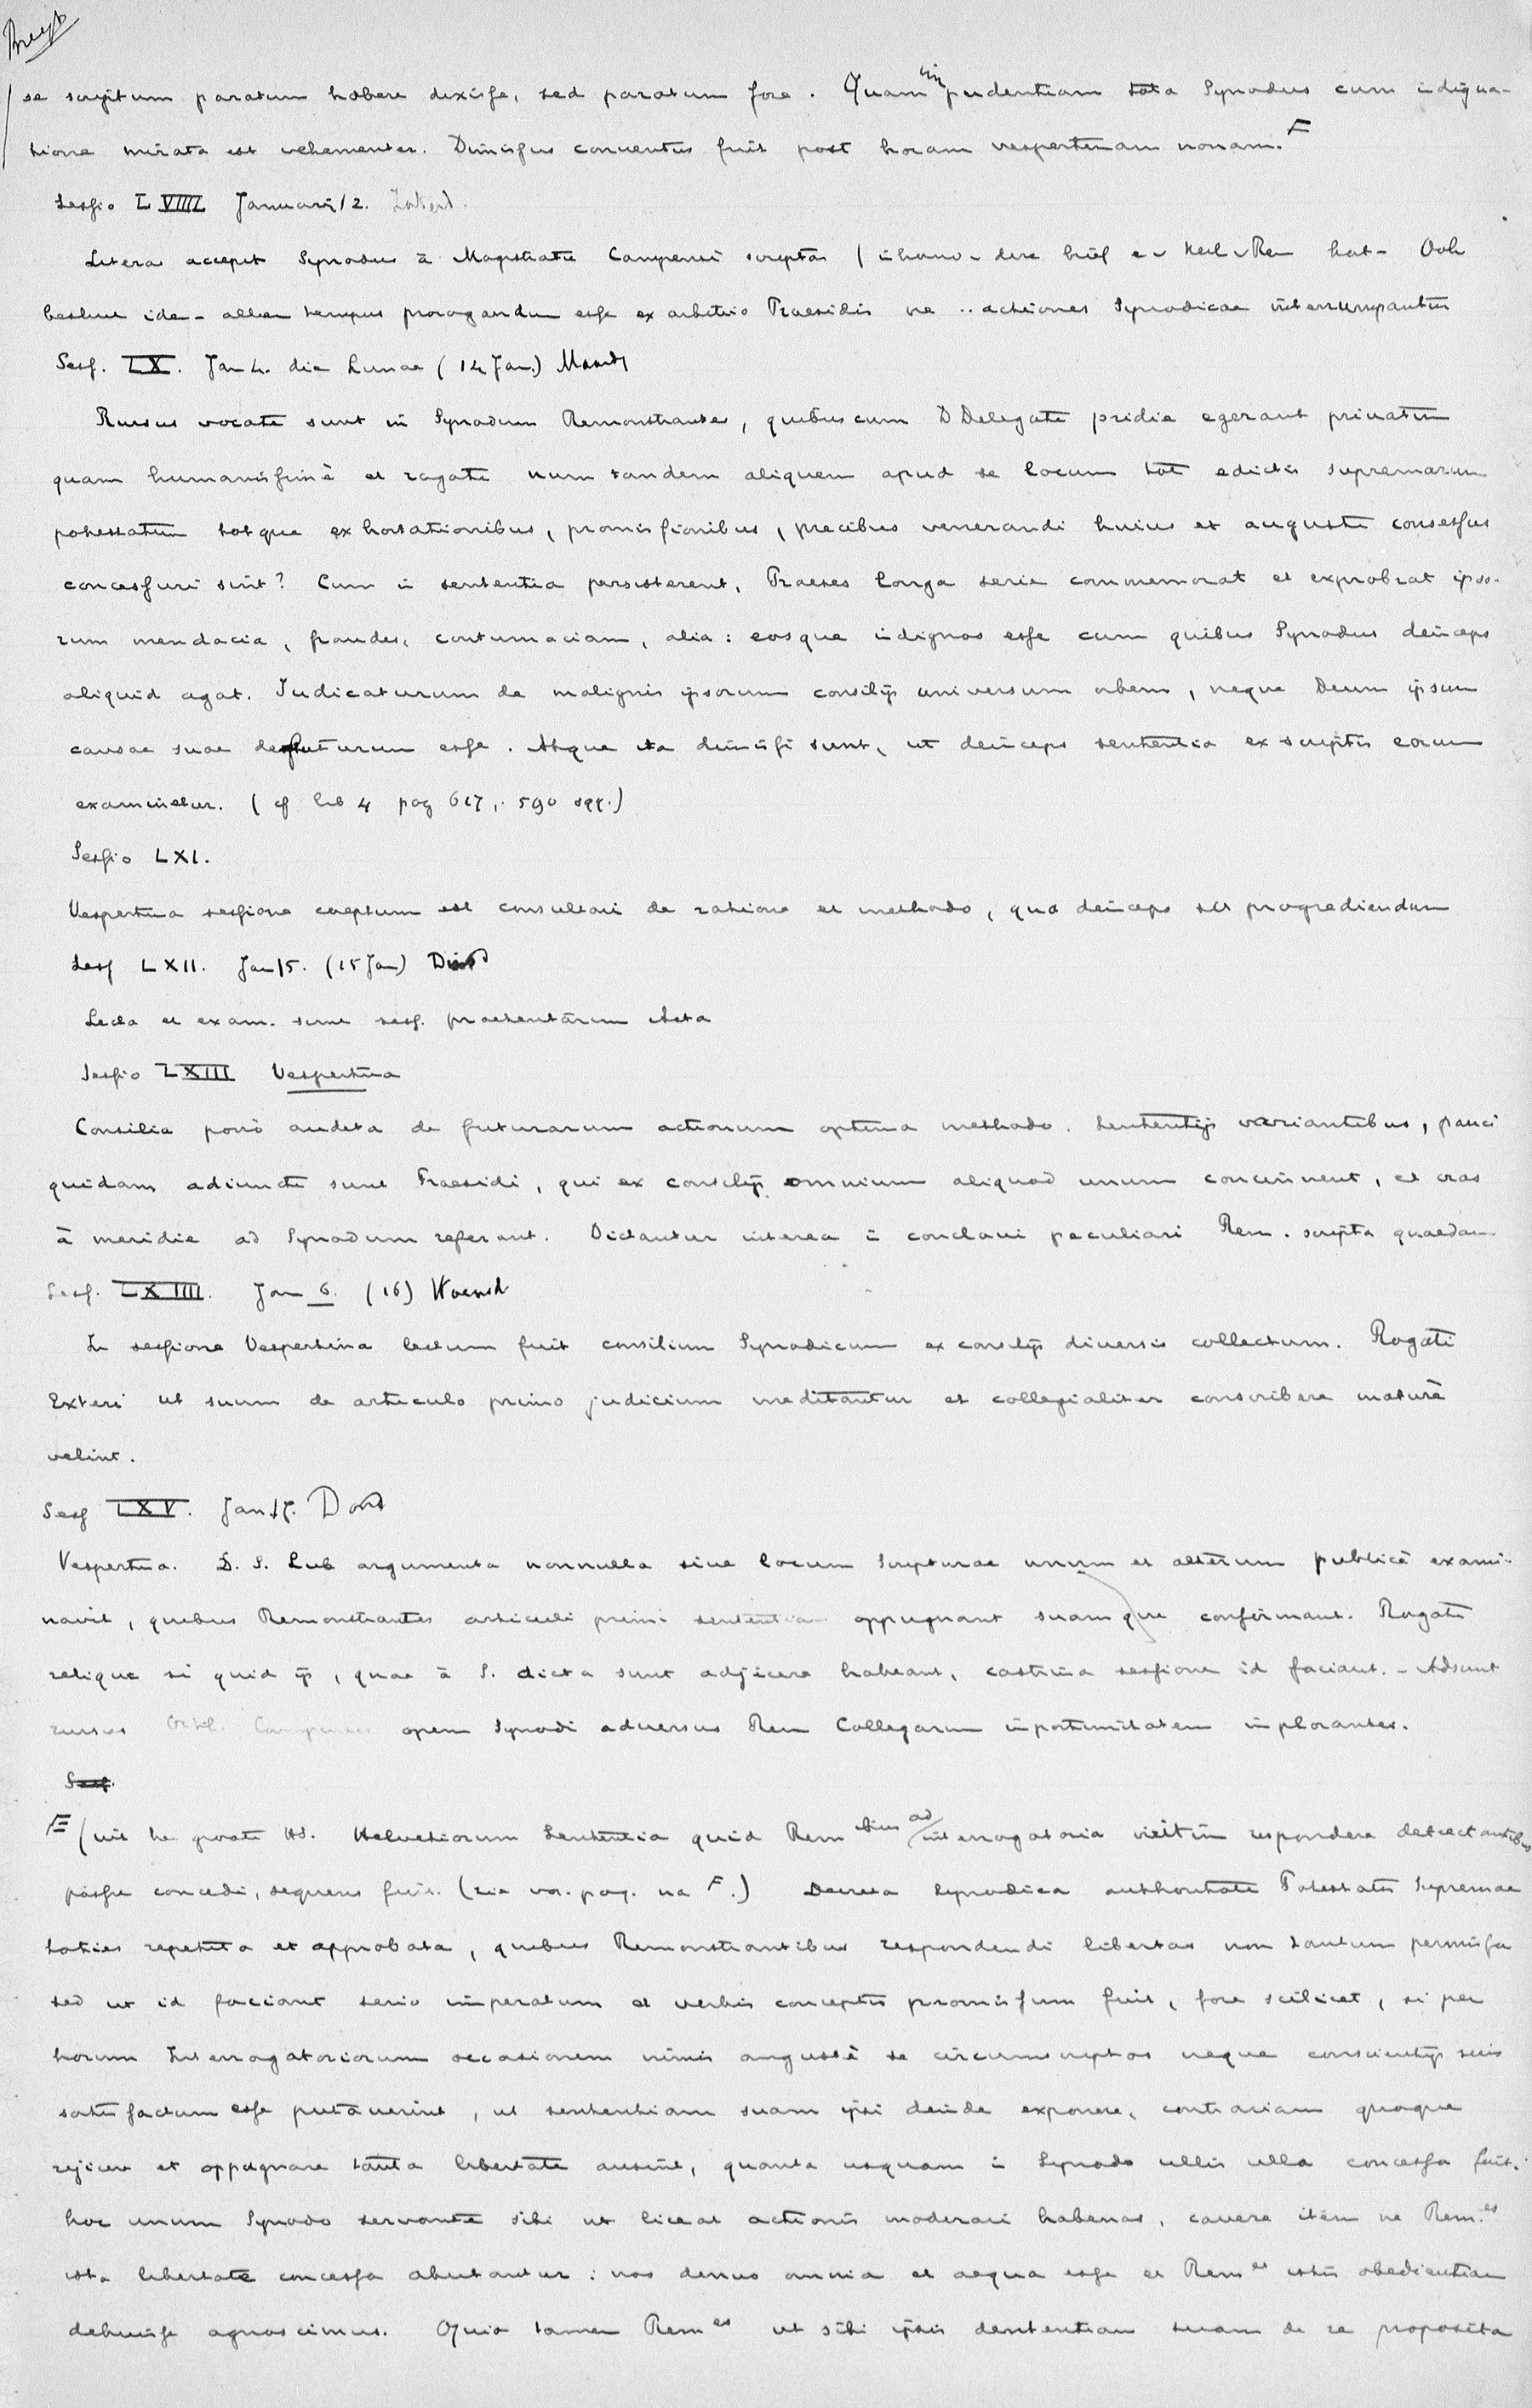 Breyt
se scriptum paratum habere dixisse, sed paratum fore. Quam impudentiam tota Synodus cum indigna-
tione mirata est vehementer. Dimissus conventus fuit post horam vespertinam nonam. F
Sessio LVIIII Januarij 12. Zaterd.
Literas accepit Synodus à Magistratu Campensi scriptas (inhoud v deze brief e v Ned v Rem hat - Ook
besluit ide - allen tempus prorogandum esse ex arbitrio Praesidis ne .. actiones Synodicae interrumpantur
Sess. LX. Jan 4. die Lunae (14 Jan.) Maand
Rursus vocati sunt in Synodum Remonstrantes, quibuscum D Delegati pridie egerant privatim
quam humanissimè et rogati num tandem aliquem apud se locum tot edictis supremarum
potestatum totque exhortationibus, promissionibus, precibus venerandi huius et augusti consessus
concessuri sint? Cum in sententia persisterent, Praeses longa serie commemorat et exprobrat ipso-
rum mendacia, fraudes, contumaciam, alia: eosque indignos esse cum quibus Synodus deinceps
aliquid agat. Judicaturum de malignis ipsorum consilijs universum orbem, neque Deum ipsum
causae suae defuturum esse. Atque ita dimissi sunt, ut deinceps sententia ex scriptis eorum
examinetur. (cf lib 4 pag 617, 590 sqq.)
Sessio LXI.
Vespertina sessione coeptum est consultari de ratione et methodo, qua deinceps sit progrediendum
Sess LXII. Jan 15. (15 Jan) Dinsd
Lecta et exam. sunt sess. praesentarum Acta
Sessio LXIII Vespertina
Consilia porrò audita de futurarum actionum optima methodo. Sententijs variantibus, pauci
quidam adiuncti sunt Praesidi, qui ex consilijs omnium aliquod unum concinnent, et cras
à meridie ad Synodum referant. Dictantur interea in conclavi peculiari Rem. scripta quaedam
Sess. LXIIII. Jan 6. (16) Woensd
In sessione Vespertina lectum fuit consilium Synodicum ex consilijs diversis collectum. Rogati
Exteri ut suum de articulo primo judicium meditantur et collegialiter conscribere maturè
velint.
Sess LXV. Jan 17. Dond
Vespertina. D. S. Lub argumenta nonnulla sive locum Scripturae unum et alterum publicè exami-
navit, quibus Remonstrantes articuli primi sententiam oppugnant suamque confirmant. Rogati
reliqui si quid ijs, quae à S. dicta sunt adjicere habeant, castrina sessione id faciant. - Adsunt
rursus Orth. Campenses opem Synodi adversus Rem Collegarum inportunitatem inplorantes.
Sess.
F (uit he groote HS. Helvetiorum Sententia quid Rem ibus ad interrogatoria viritim respondere detrectantibus
posse concedi, sequens fuit. (zie vor. pag. na F.) Decreta Synodica authoritate Potestatis Supremae
toties repetita et approbata, quibus Remonstrantibus respondendi libertas non tantum permissa
sed ut id faciant serio imperatum et verbis conceptis promissum fuit, fore scilicet, si per
horum Interrogatoriorum occasionem nimis angustè se circumscriptos neque conscientijs suis
satisfactum esse putaverint, ut sententiam suam ipsi deinde exponere, contrariam quoque
rejicere et oppugnare tanta libertate ausint, quanta usquam in Synodo ullis ulla concessa fuit.
hoc unum Synodo servante sibi ut liceat actionis moderari habenas, cavere item ne Rem.es
ista libertate concessa abutantur: nos denuo omnia et aequa esse et Rem es istis obedientiam
debuisse agnoscimus. Quia tamen Rem es ut sibi ipsis sententiam suam de re proposita